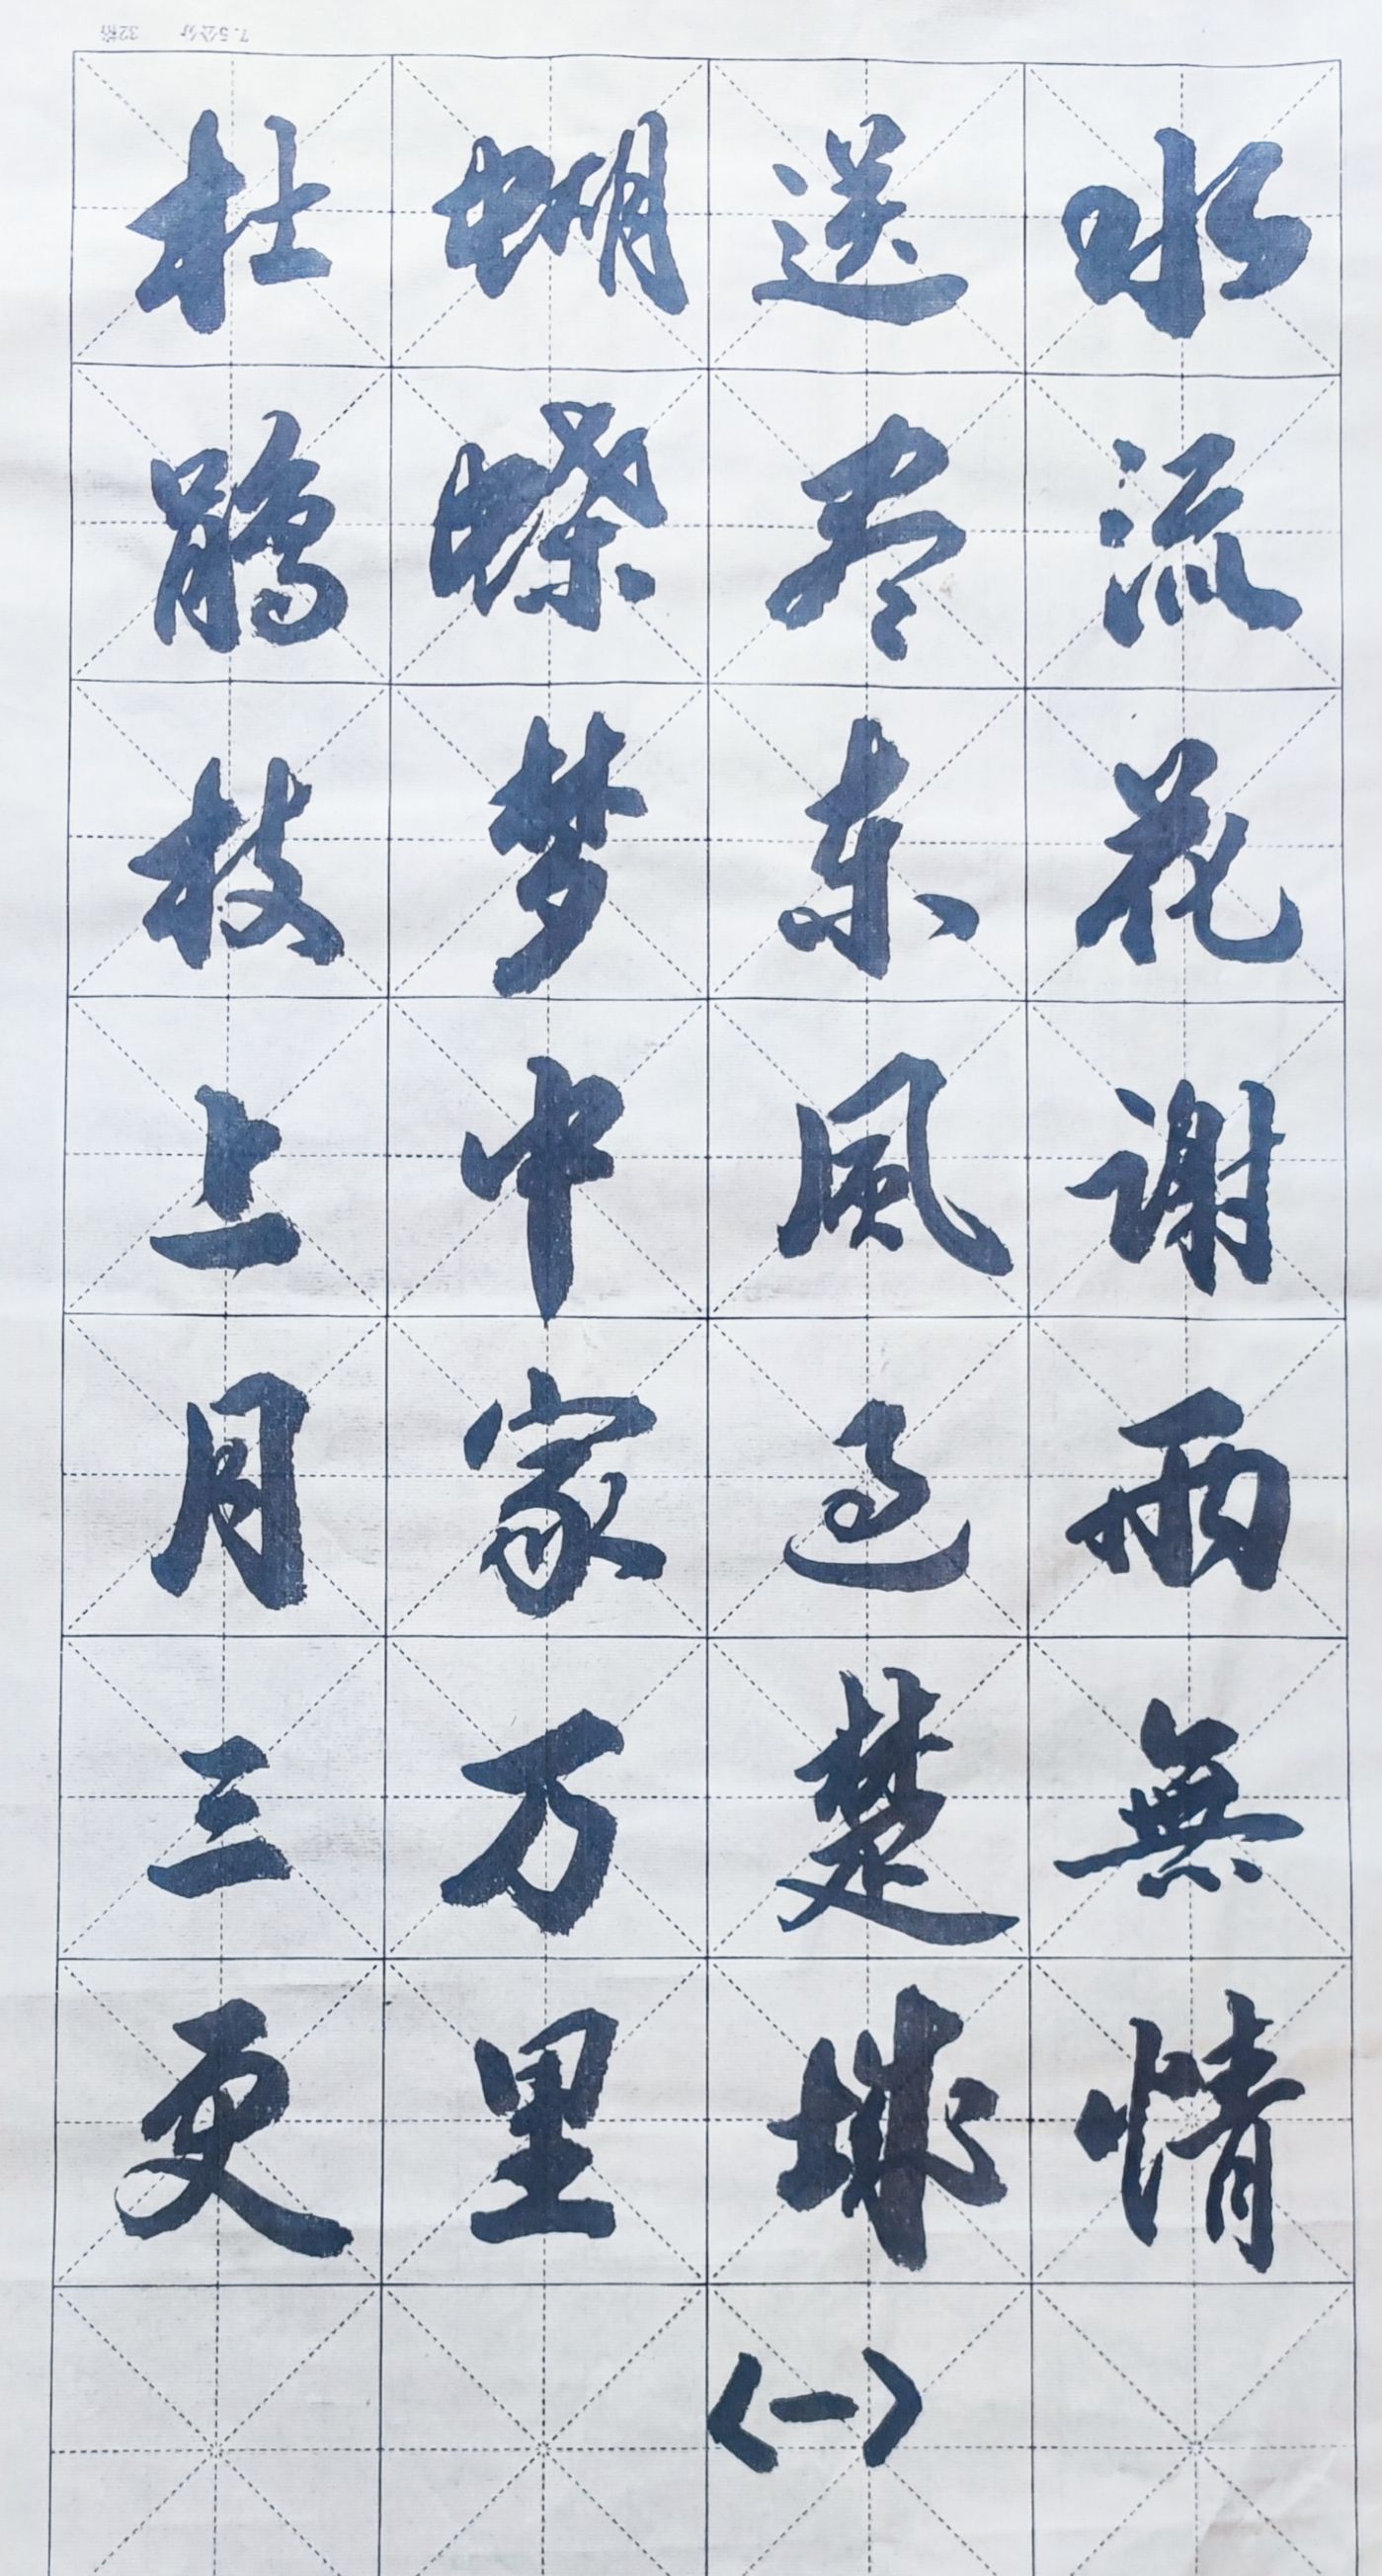 7.5公分 32格
水流花谢两無情
送尽东風过楚城
(一)
蝴蝶梦中家万里
杜鹃枝上月三更